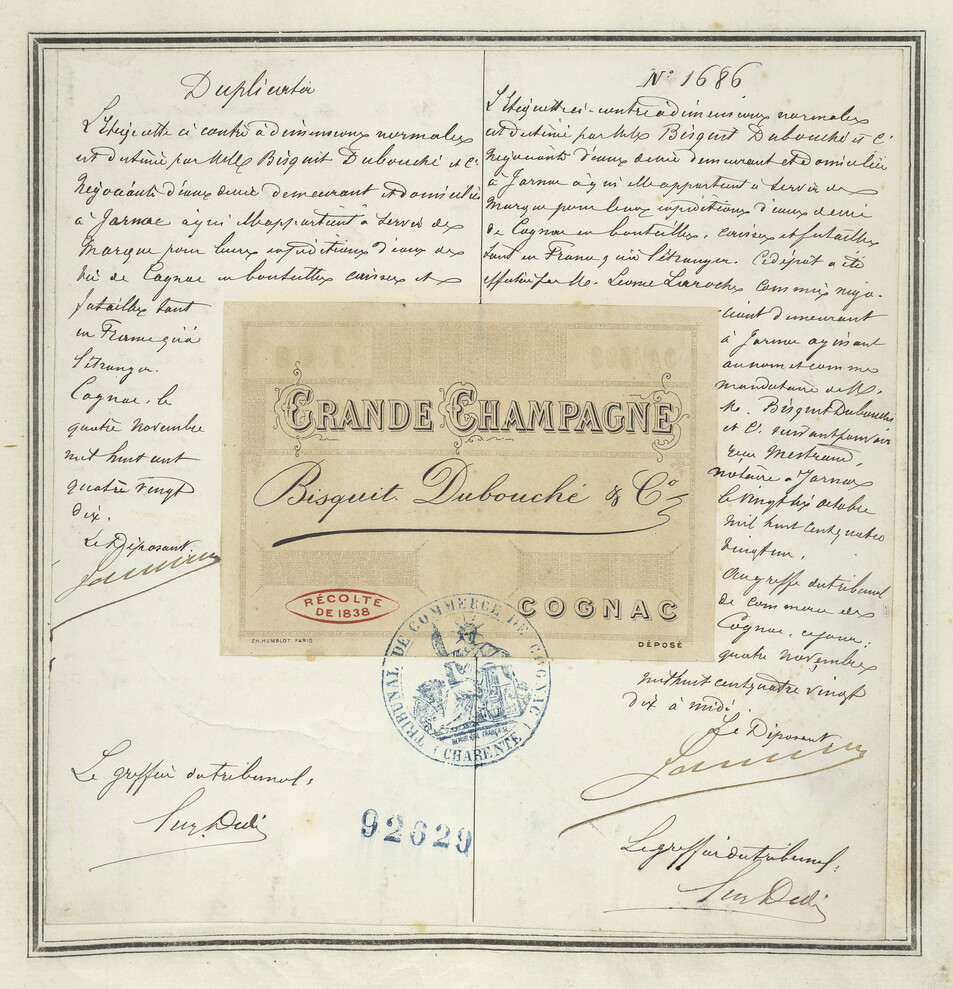 Duplicata
L'Etiquette ci contre a dimensions normales
est destiné par MM Bisquit Dubouché et Cie
Négociants d'eaux de vie demeurant et domiciliés
à Jarnac à qui elle appartient à servir de
Marque pour leurs expéditions d'eaux de
vie de Cognac en bouteilles caisses et
futailles tant
en France qu'à
l'étranger.
Cognac, le
quatre novembre
mil huit cent
quatre vingt
dix.
Le Déposant
Le greffier du tribunal:
No 1686
L'Etiquette ci-contre a dimensions normales
est destiné par MM Bisquit Dubouché et Cie
Négociants d'eaux de vie demeurant et domiciliés
à Jarnac à qui elle appartient à servir de
Marque pour leurs expéditions d'eaux de vie
de Cognac en bouteilles, caisses et futailles
tant en France qu'à l'étranger. Ce dépôt a été
effectué par M. Leonce Laroche commis négo-
ciant demeurant
à Jarnac agissant
au nom et comme
mandataire de M.
M. Bisquit Dubouché
et Cie suivant pouvoir
reçu Mestraud,
notaire à Jarnac
le vingt six octobre
mil huit cent quatre
vingt un.
Au greffe du tribunal
de commerce de
Cognac, ce jour,
quatre novembre
mil huit cent quatre vingt
dix à midi.
Le Déposant
Le greffier du tribunal:
GRANDE CHAMPAGNE
Bisquit. Dubouché & Co
RÉCOLTE
DE 1838
COGNAC
CH. HUMBLOT PARIS
DÉPOSÉ
TRIBUNAL DE COMMERCE DE COGNAC
RÉPUBLIQUE FRANÇAISE
(CHARENTE)
92629